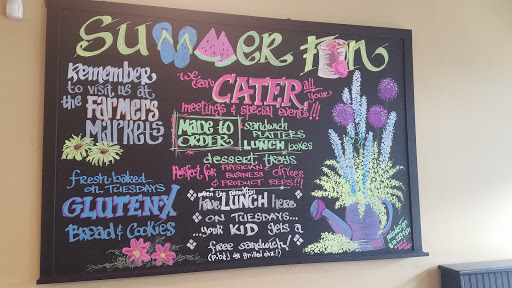 SUMMER FUN
Remember
to visit us at
the FARMERS
MARKETS
we can CATER all your
meetings & special events!!!
MADE to ORDER
sandwich
PLATTERS
LUNCH boxes
dessert trays
Perfect for PHYSICIAN & BUSINESS offices
& PRODUCT REPS!!!
fresh baked
on TUESDAYS
GLUTEN-X
BREAD & COOKIES
have LUNCH here
ON TUESDAYS...
...your KID gets a
free sandwich!
(p.b&j or grilled chz!)